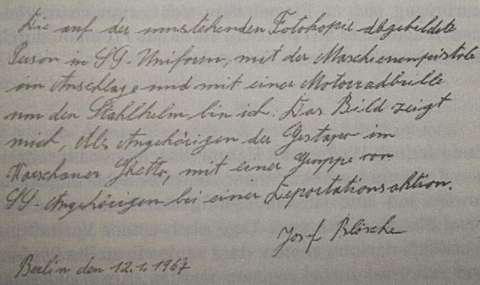 Die auf der umstehenden Fotokopie abgebildete
Person in SS-Uniform, mit der Maschienenpistole
im Anschlage und mit einer Motorradbrille
um den Stahlhelm bin ich. Das Bild zeigt
mich, als Angehörigen der Gestapo im
Warschauer Ghetto, mit einer Gruppe von
SS-Angehörigen bei einer Deportationsaktion.
Josef Blösche
Berlin den 12.1.1967